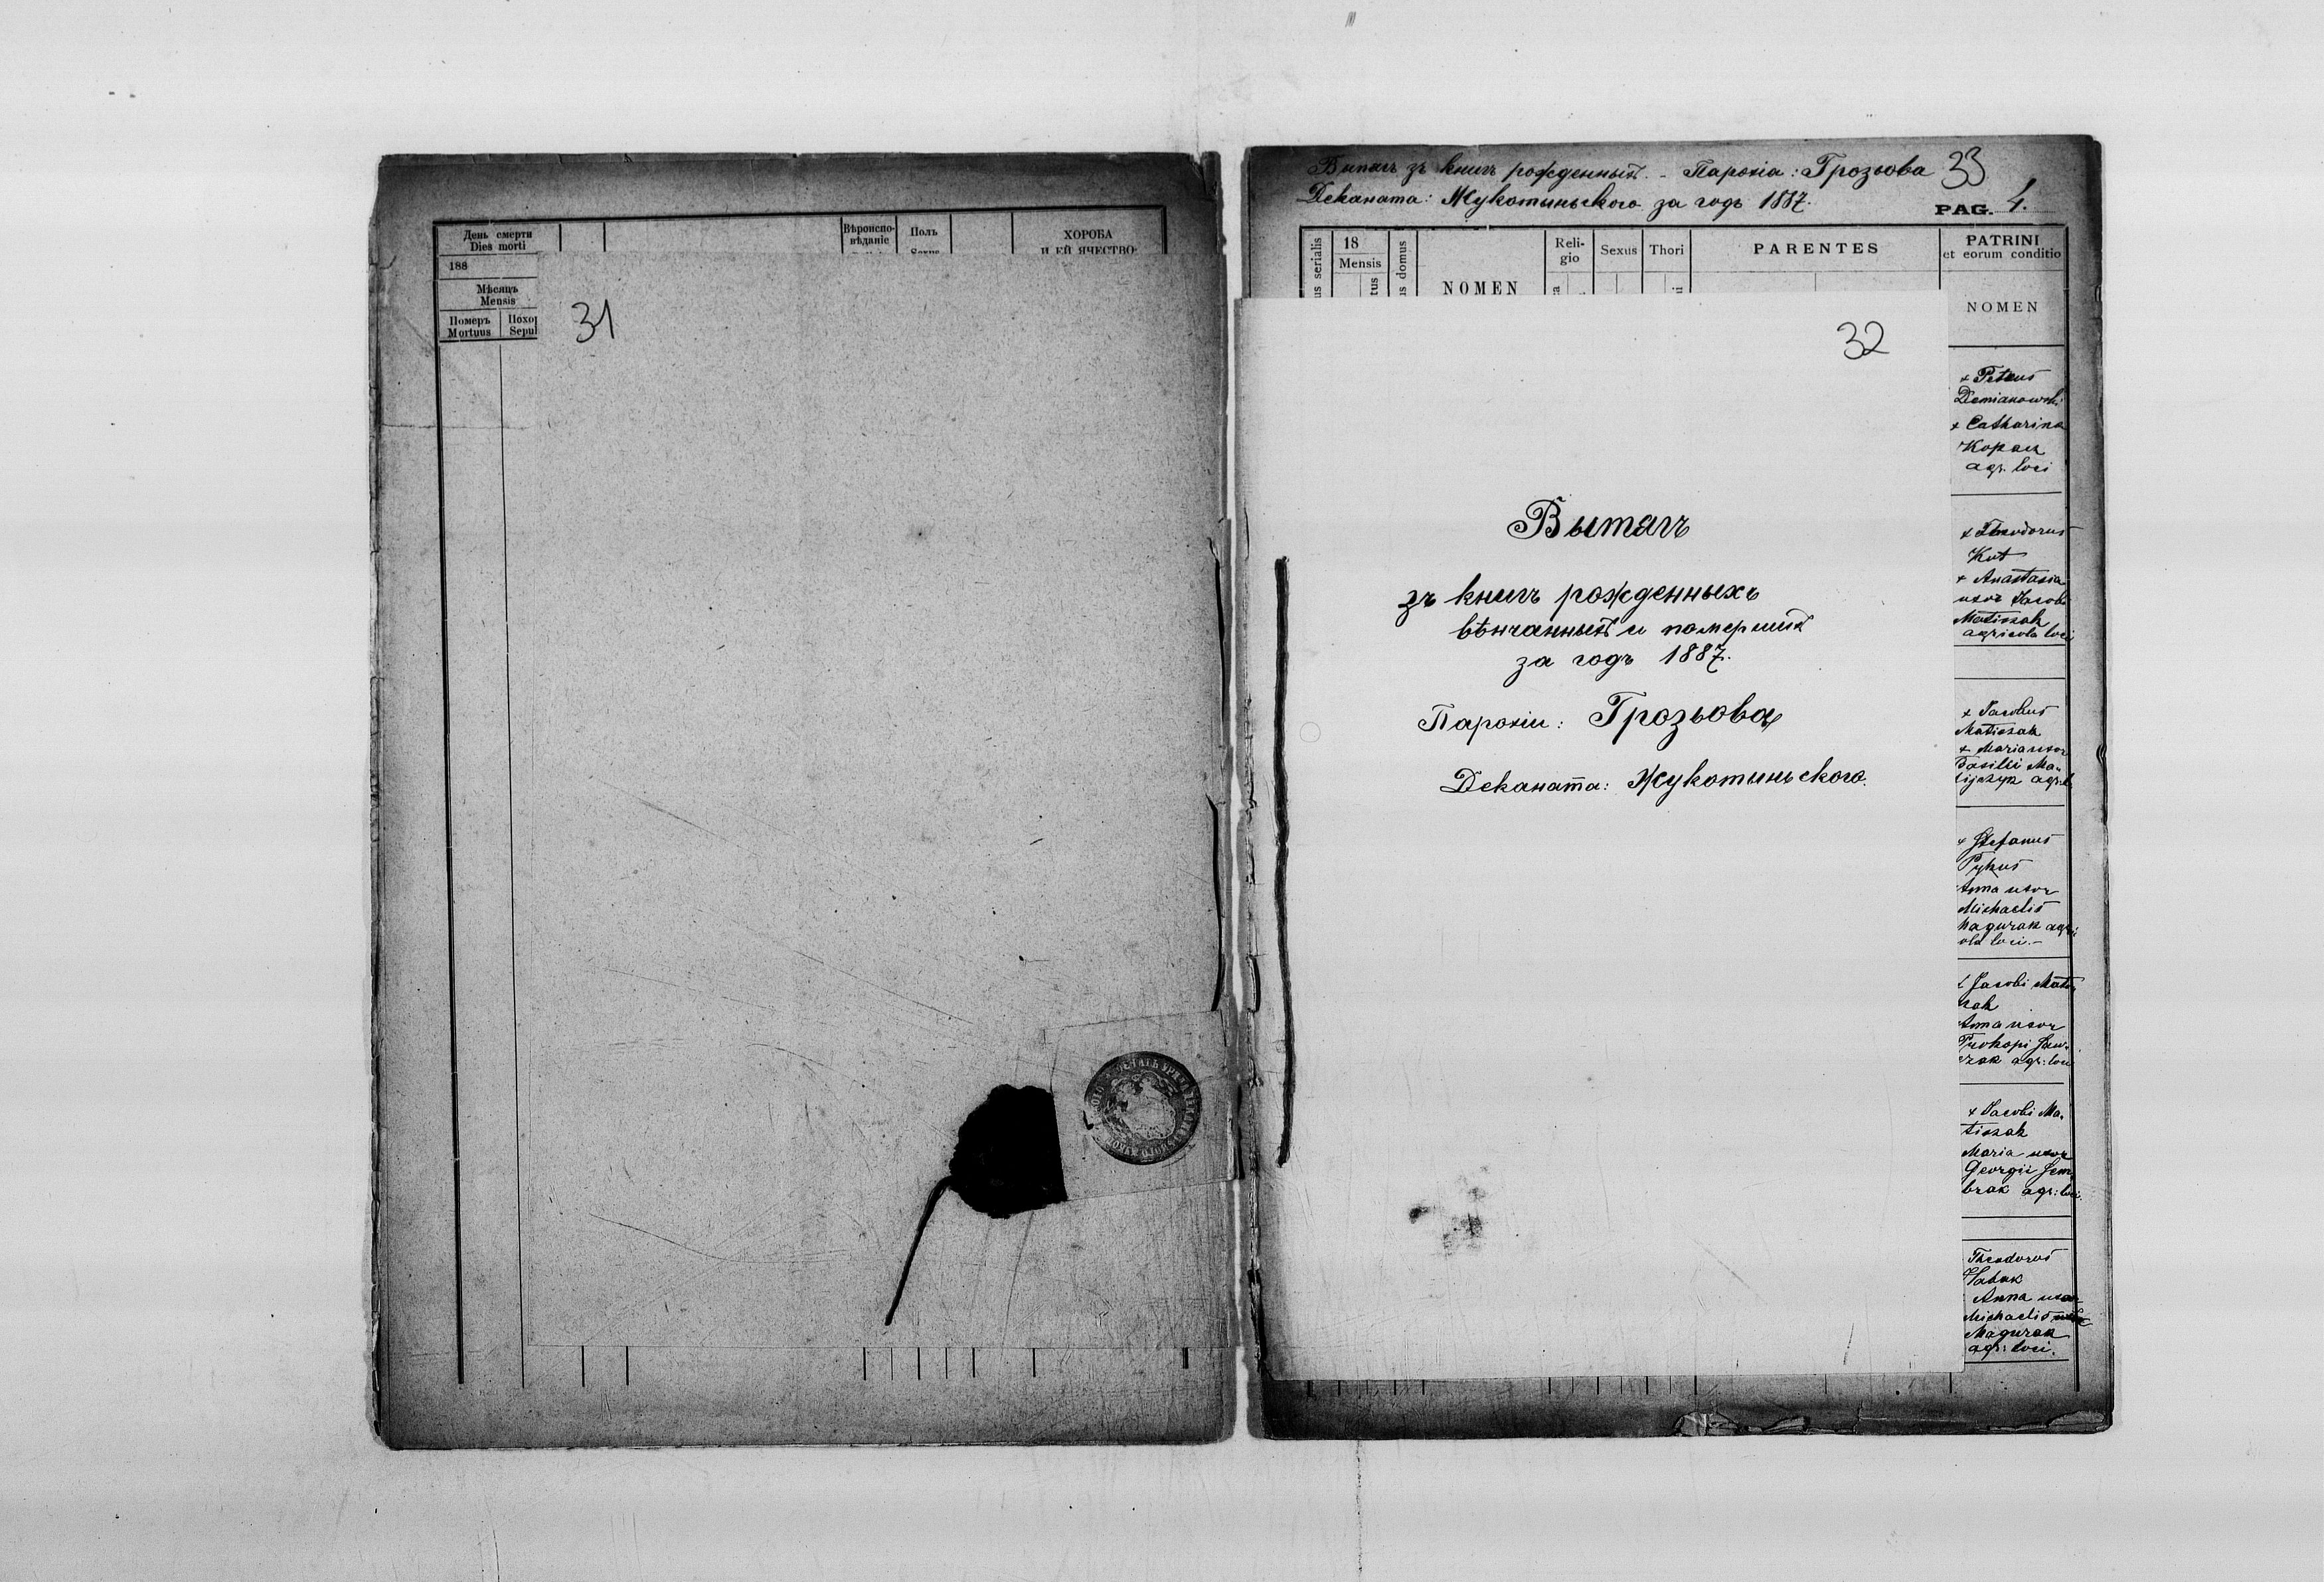 День смерти
Dies morti
188
Мѣсяць
Mensis
Померъ
Mortuus
Похо
Sepul
Вѣроиспо-
вѣданіе
Полъ
Sexus
ХОРОБА
И ЕЙ ЯЧЕСТВО-
31
Вытягъ зъ книгъ рожденныхъ. - Парохіа: Грозьова 33
Деканата: Жукотыньского за годъ 1887.
PAG. 4.
us serialis
18
Mensis
tus
us domus
NOMEN
Reli-
gio
Sexus
Thori
PARENTES
PATRINI
et eorum conditio
NOMEN
32
Вытягъ
зъ книгъ рожденныхъ
вѣнчанныхъ и помершихъ
за годъ 1887.
Парохіи: Грозьова
Деканата: Жукотыньского.
+ Petrus
Demianowski
+ Catharina
Kopacz
agr. loci
+ Theodorus
Kut
+ Anastasia
uxor Jacobi
Matiszak
agricola loci
+ Jacobus
Matiszak
+ Maria uxor
Basilii Ma-
+ Stefanus
Anna uxor
Michaelis
Magurak agri
ola loci.-
+ Jacobi Mati
szak
Anna uxor
Prokopi
agr: loci
+ Jacobi Ma-
tiszak
Maria uxor
Georgii Sem
brak agr: loci.
Theodorus
Anna uxor
Michaelis
Magurak
agr: loci.